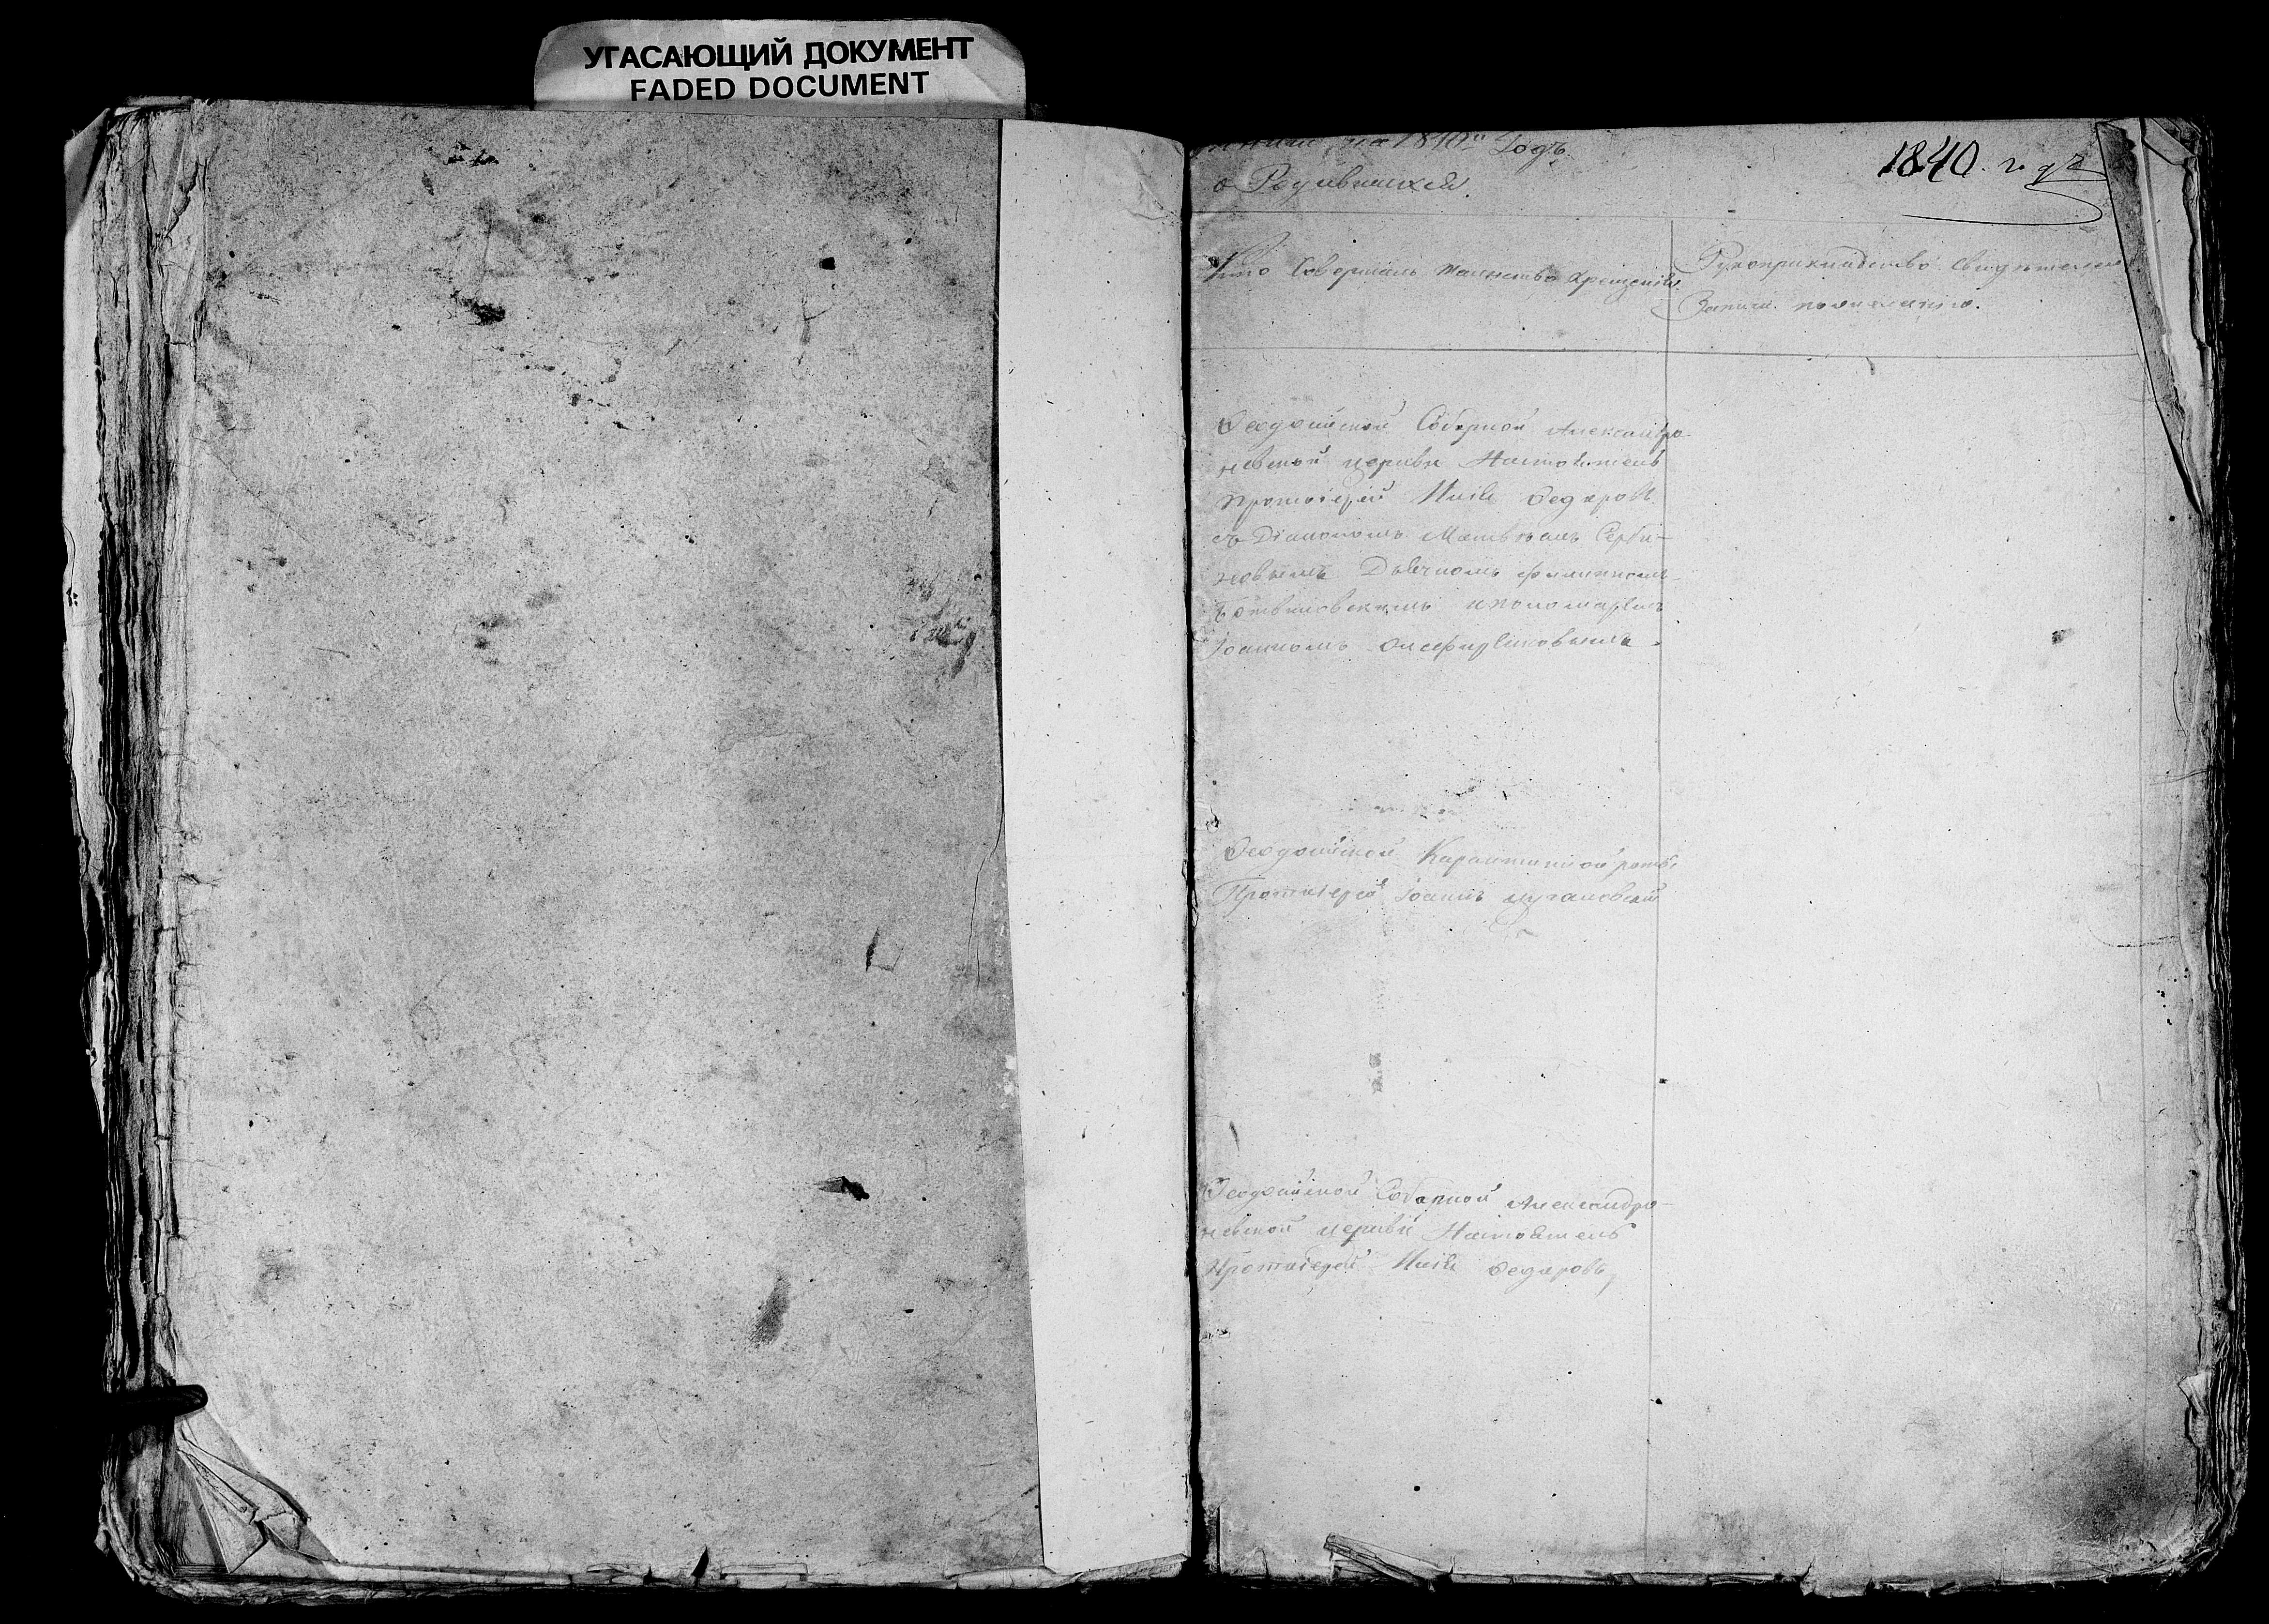 УГАСАЮЩИЙ ДОКУМЕНТ
FADED DOCUMENT
на 1840й Годъ
1840. годъ
о Родившихся
Кто Совершалъ таинство крещенія.
Рукоприкладство свидетелей
Записи по желанію.
Ѳеодосійской Соборной Александро-
невской церкви Настоятель
протоіерей Илія Ѳедоровъ
съ Діакономъ Матвѣемъ Серби-
новымъ Дьячкомъ филиппомъ
и пономаремъ
Іоанномъ
Ѳеодосійской Карантинной роты
Протоіерей Іоаннъ
Ѳеодосійской Соборной Александро-
невской церкви Настоятель
Протоіерей Илія Ѳедоровъ,